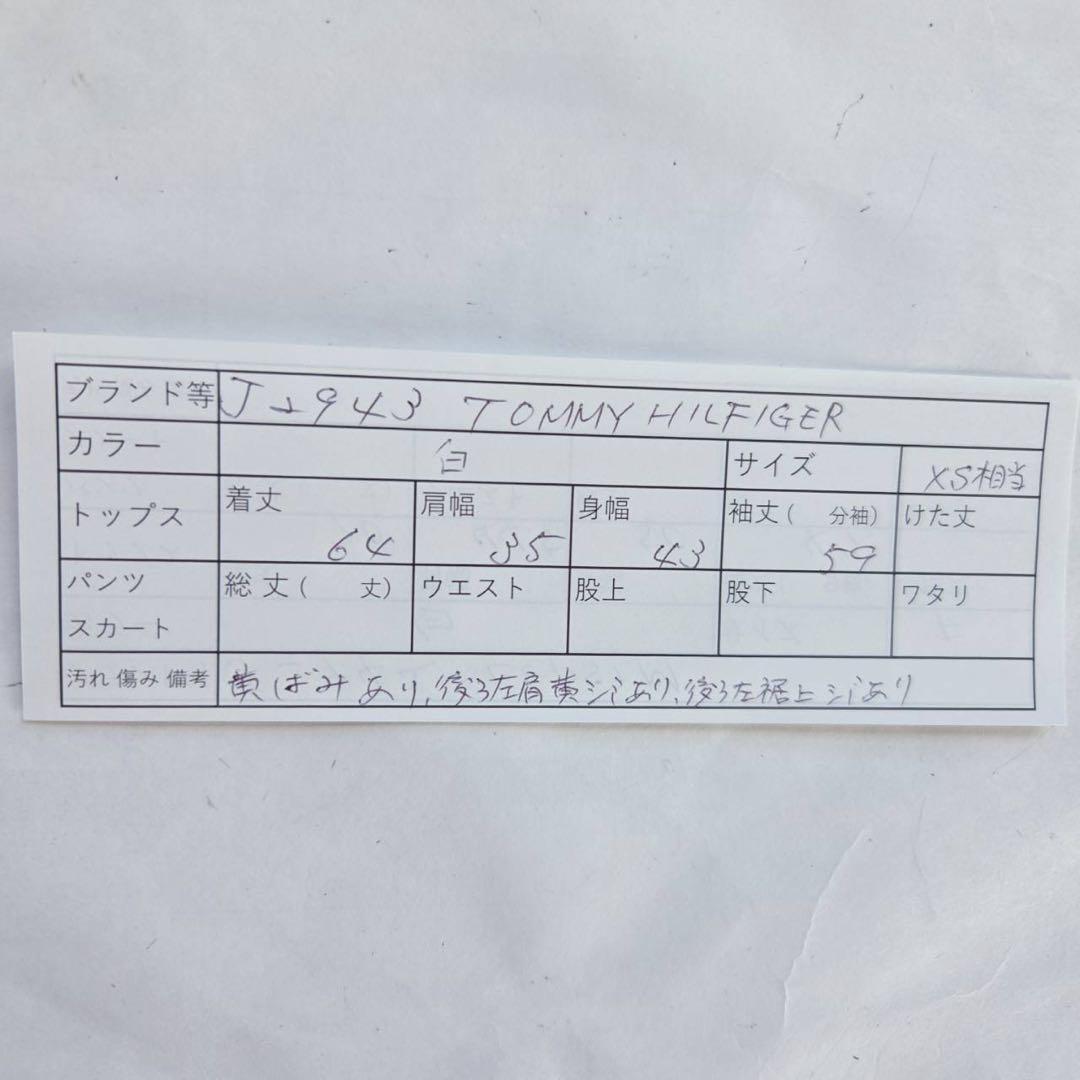 ブランド等 J→943 TOMMY HILFIGER
カラー 白 サイズ XS相当
トップス 着丈 64 肩幅 35 身幅 43 袖丈( 分袖) 59 けた丈
パンツ スカート 総丈( 丈) ウエスト 股上 股下 ワタリ
汚れ 傷み 備考 黄ばみあり、後ろ左肩黄シミあり、後ろ左裾上シミあり